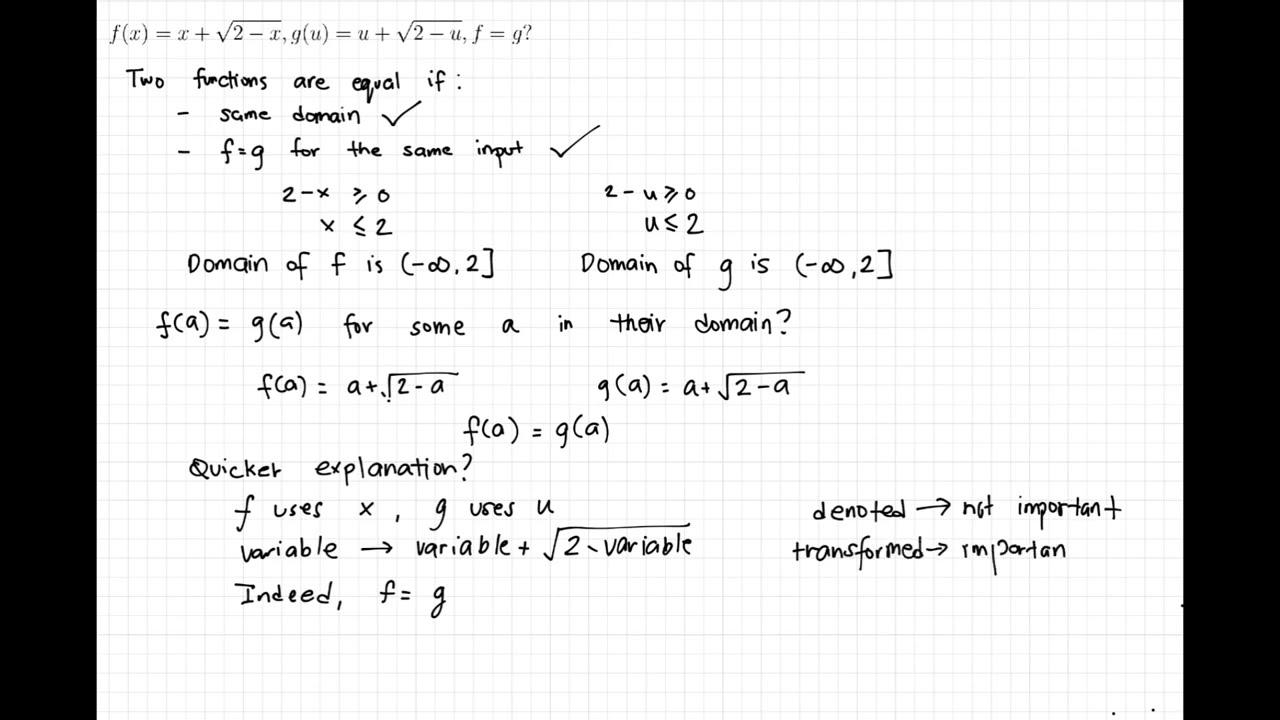 f(x) = x + √2 − x, g(u) = u + √2 − u, f = g?
Two functions are equal if :
- same domain ✓
- f=g for the same input ✓
2-x ⩾ 0 2-u ⩾ 0
x ≤ 2 u ≤ 2
Domain of f is (-∞, 2] Domain of g is (-∞, 2]
f(a) = g(a) for some a in their domain?
f(a) = a+√2-a g(a) = a+√2-a
f(a) = g(a)
Quicker explanation?
f uses x , g uses u denoted → not important
variable → variable + √2-variable transformed → importan
Indeed, f= g